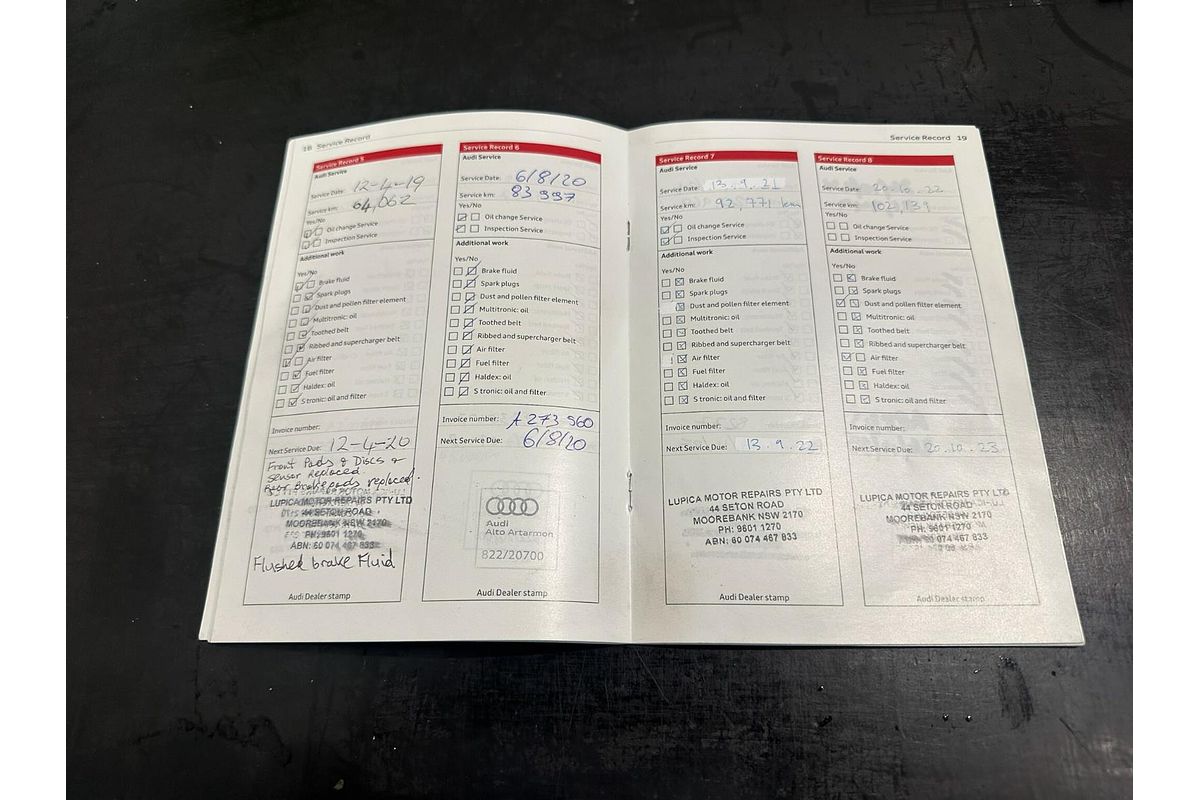 18 Service Record
Service Record 5
Audi Service
Service Date: 12-4-19
Service km: 64,062
Yes/No
Oil change Service
Inspection Service
Additional work
Yes/No
Brake fluid
Spark plugs
Dust and pollen filter element
Multitronic: oil
Toothed belt
Ribbed and supercharger belt
Air filter
Fuel filter
Haldex: oil
S tronic: oil and filter
Invoice number:
Next Service Due: 12-4-20
Front Pads & Discs &
Sensor Replaced.
Rear Brake pads replaced.
LUPICA MOTOR REPAIRS PTY LTD
44 SETON ROAD
MOOREBANK NSW 2170
PH: 9601 1270
ABN: 60 074 467 833
Flushed brake Fluid
Audi Dealer stamp
Service Record 6
Audi Service
Service Date: 6/8/20
Service km: 83 997
Yes/No
Oil change Service
Inspection Service
Additional work
Yes/No
Brake fluid
Spark plugs
Dust and pollen filter element
Multitronic: oil
Toothed belt
Ribbed and supercharger belt
Air filter
Fuel filter
Haldex: oil
S tronic: oil and filter
Invoice number: A 273 560
Next Service Due: 6/8/20
Audi
Alto Artarmon
822/20700
Audi Dealer stamp
Service Record 19
Service Record 7
Audi Service
Service Date: 13.9.21
Service km: 92,771 km
Yes/No
Oil change Service
Inspection Service
Additional work
Yes/No
Brake fluid
Spark plugs
Dust and pollen filter element
Multitronic: oil
Toothed belt
Ribbed and supercharger belt
Air filter
Fuel filter
Haldex: oil
S tronic: oil and filter
Invoice number:
Next Service Due: 13.9.22
LUPICA MOTOR REPAIRS PTY LTD
44 SETON ROAD
MOOREBANK NSW 2170
PH: 9601 1270
ABN: 60 074 467 833
Audi Dealer stamp
Service Record 8
Audi Service
Service Date: 20.10.22
Service km: 102,139
Yes/No
Oil change Service
Inspection Service
Additional work
Yes/No
Brake fluid
Spark plugs
Dust and pollen filter element
Multitronic: oil
Toothed belt
Ribbed and supercharger belt
Air filter
Fuel filter
Haldex: oil
S tronic: oil and filter
Invoice number:
Next Service Due: 20.10.23
LUPICA MOTOR REPAIRS PTY LTD
44 SETON ROAD
MOOREBANK NSW 2170
PH: 9601 1270
074 467 833
Audi Dealer stamp